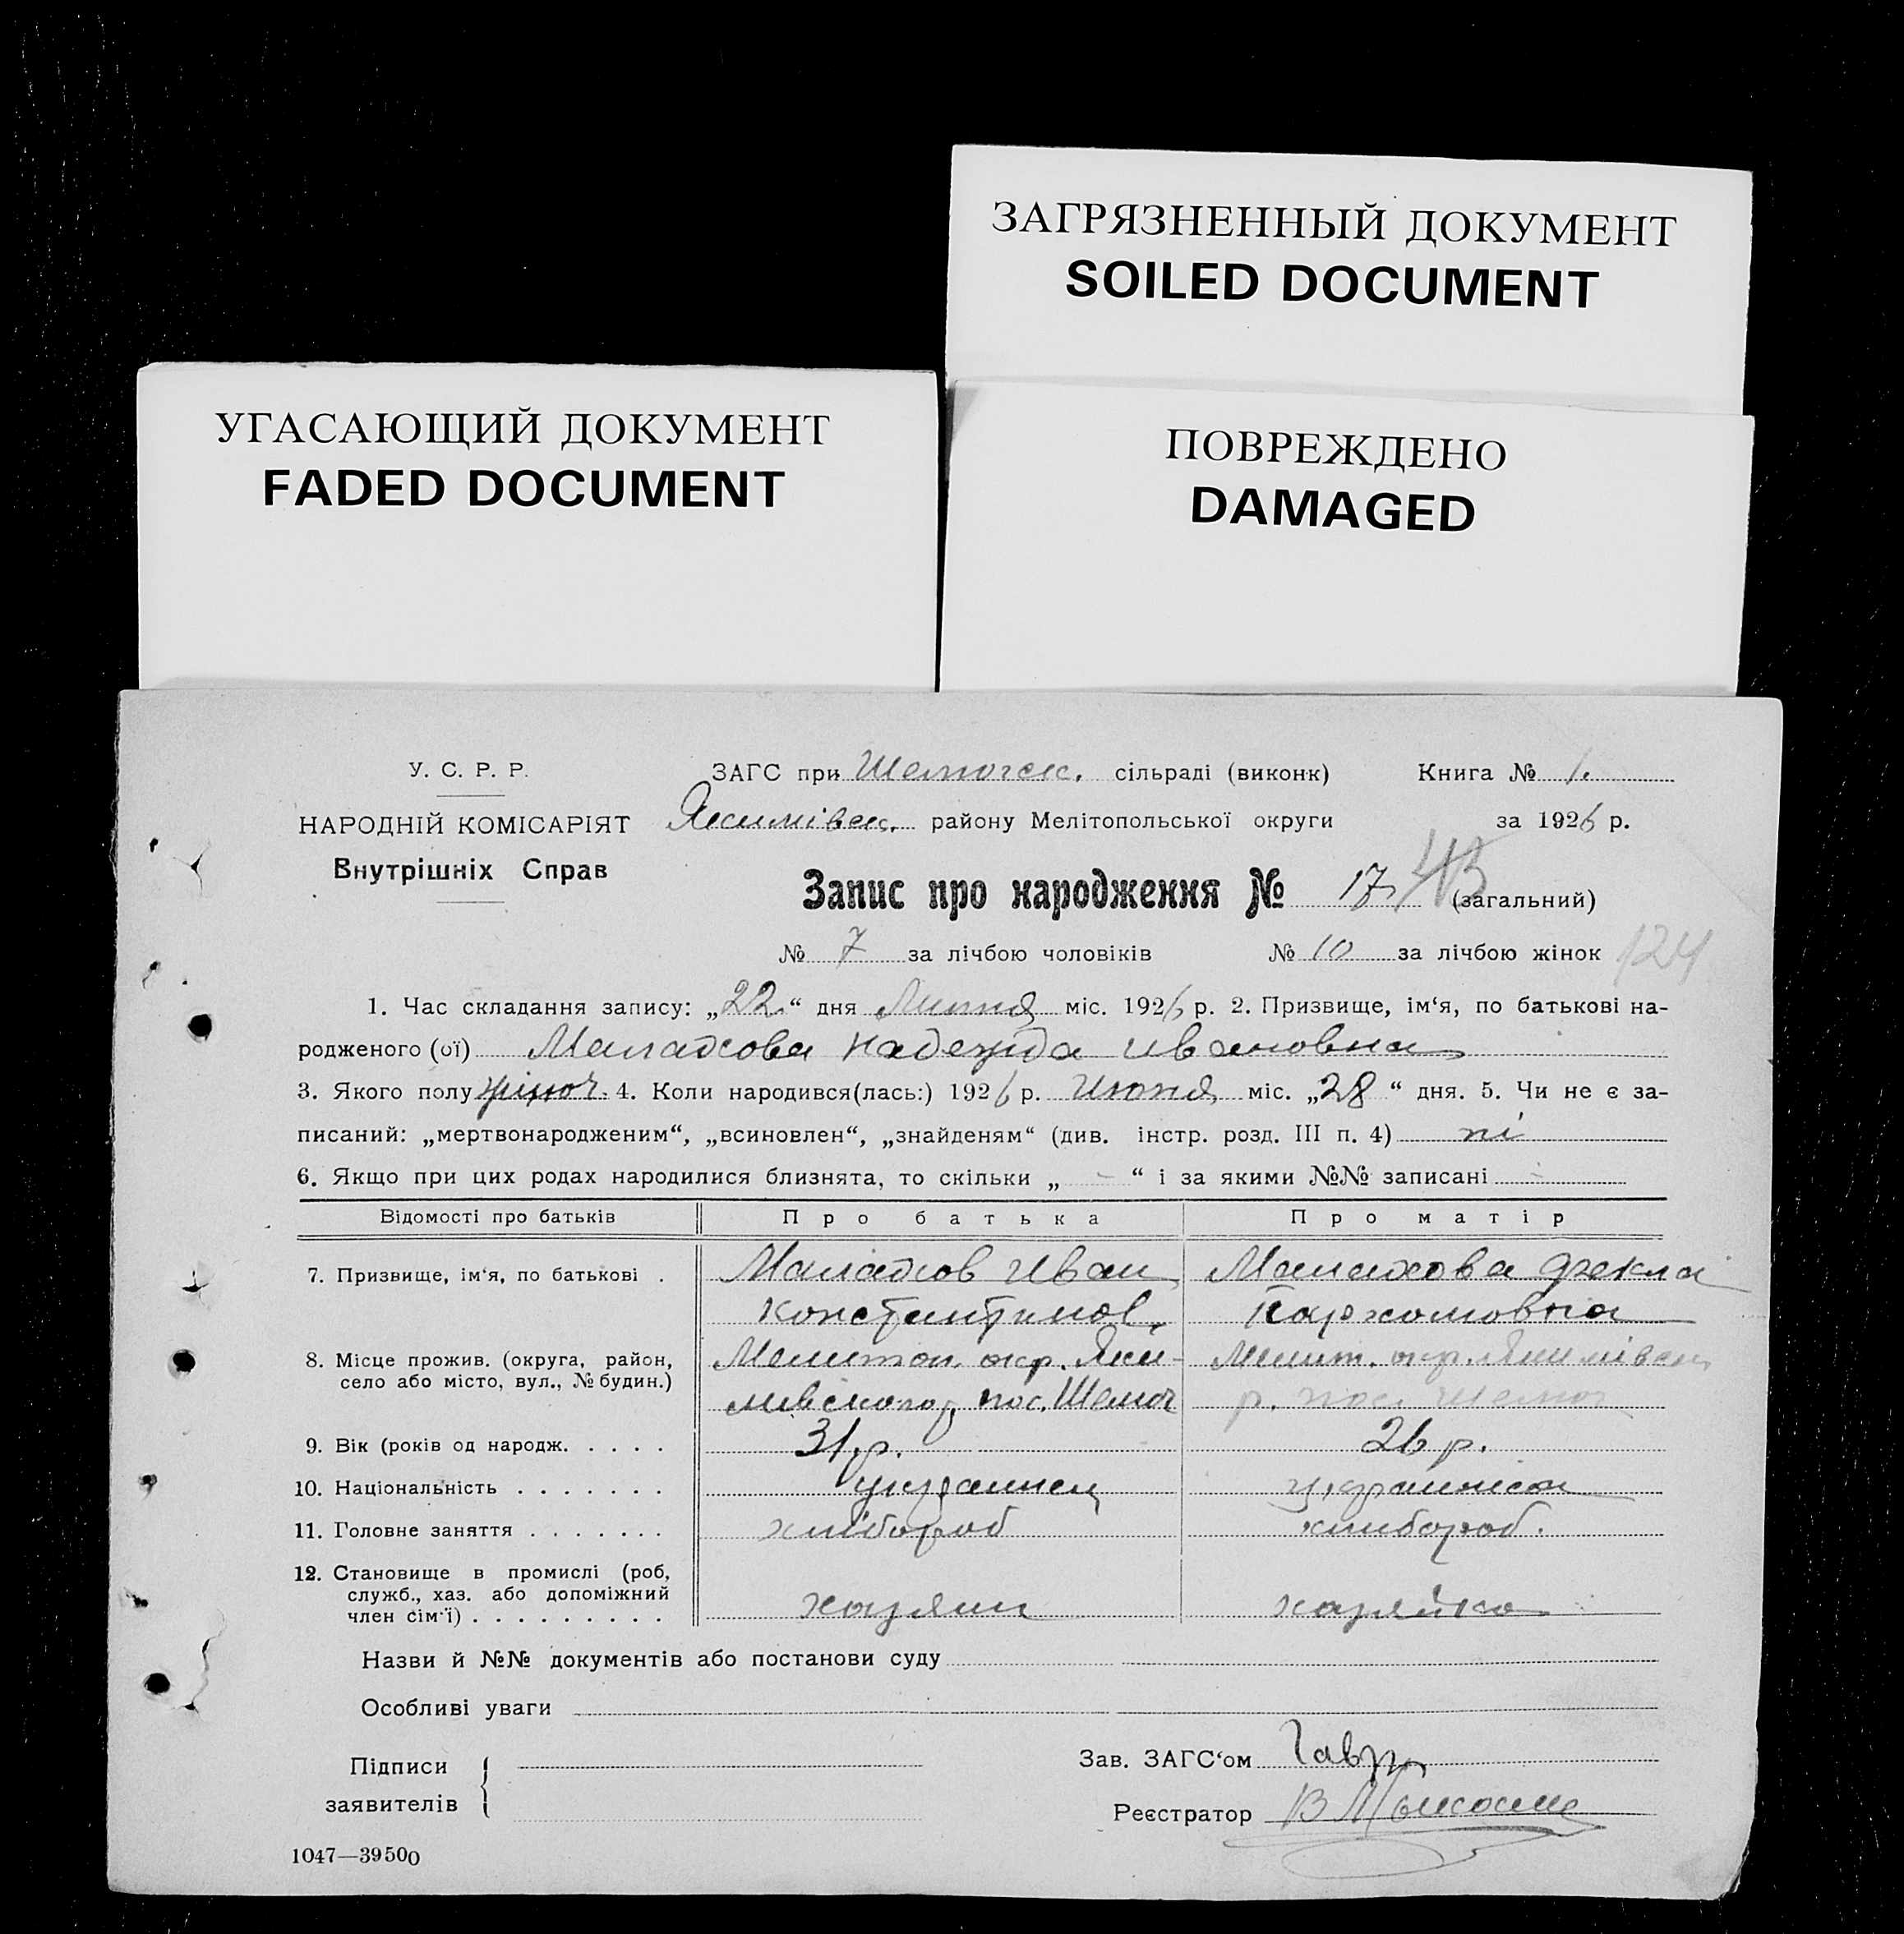 ЗАГРЯЗНЕННЫЙ ДОКУМЕНТ
SOILED DOCUMENT
УГАСАЮЩИЙ ДОКУМЕНТ
FADED DOCUMENT
ПОВРЕЖДЕНО
DAMAGED
У. С. Р. Р.
НАРОДНІЙ КОМІСАРІЯТ
Внутрішніх Справ
ЗАГС при сільраді (виконк) Книга № 1.
Якимівск. району Мелітопольської округи за 1926 р.
Запис про народження № 17 (загальний)
№ 7 за лічбою чоловіків № 10 за лічбою жінок 124
1. Час складання запису: „22“ дня Липня міс. 1926 р. 2. Призвище, ім‘я, по батькові на-
родженого (ої) Малахова Надежда Ивановна
3. Якого полу жіноч. 4. Коли народився(лась:) 1926 р. Июня міс. „28“ дня. 5. Чи не є за-
писаний: „мертвонародженим“, „всиновлен“, „знайденям“ (див. інстр. розд. III п. 4) ні
6. Якщо при цих родах народилися близнята, то скільки „ - “ і за якими №№ записані -
Відомості про батьків Про батька Про матір
7. Призвище, ім‘я, по батькові . Малахов Иван Малахова Фекла
Константинов. Пархомовна
8. Місце прожив. (округа, район, Мелитоп. окр. Яки- Мелит. окр. Якимівск
село або місто, вул., № будин.) мівского р. пос. Шемог р. пос. Шемог
9. Вік (років од народж. . . . . 31 р. 26 р.
10. Національність . . . . . . . украинец украинка
11. Головне заняття . . . . . . . хлібороб хлибороб.
12. Становище в промислі (роб,
служб., хаз. або допоміжний
член сім‘ї) . . . . . . . . . хазяин хазяйка
Назви й №№ документів або постанови суду
Особливі уваги
Підписи
заявителів
Зав. ЗАГС‘ом
Реєстратор
1047—39500